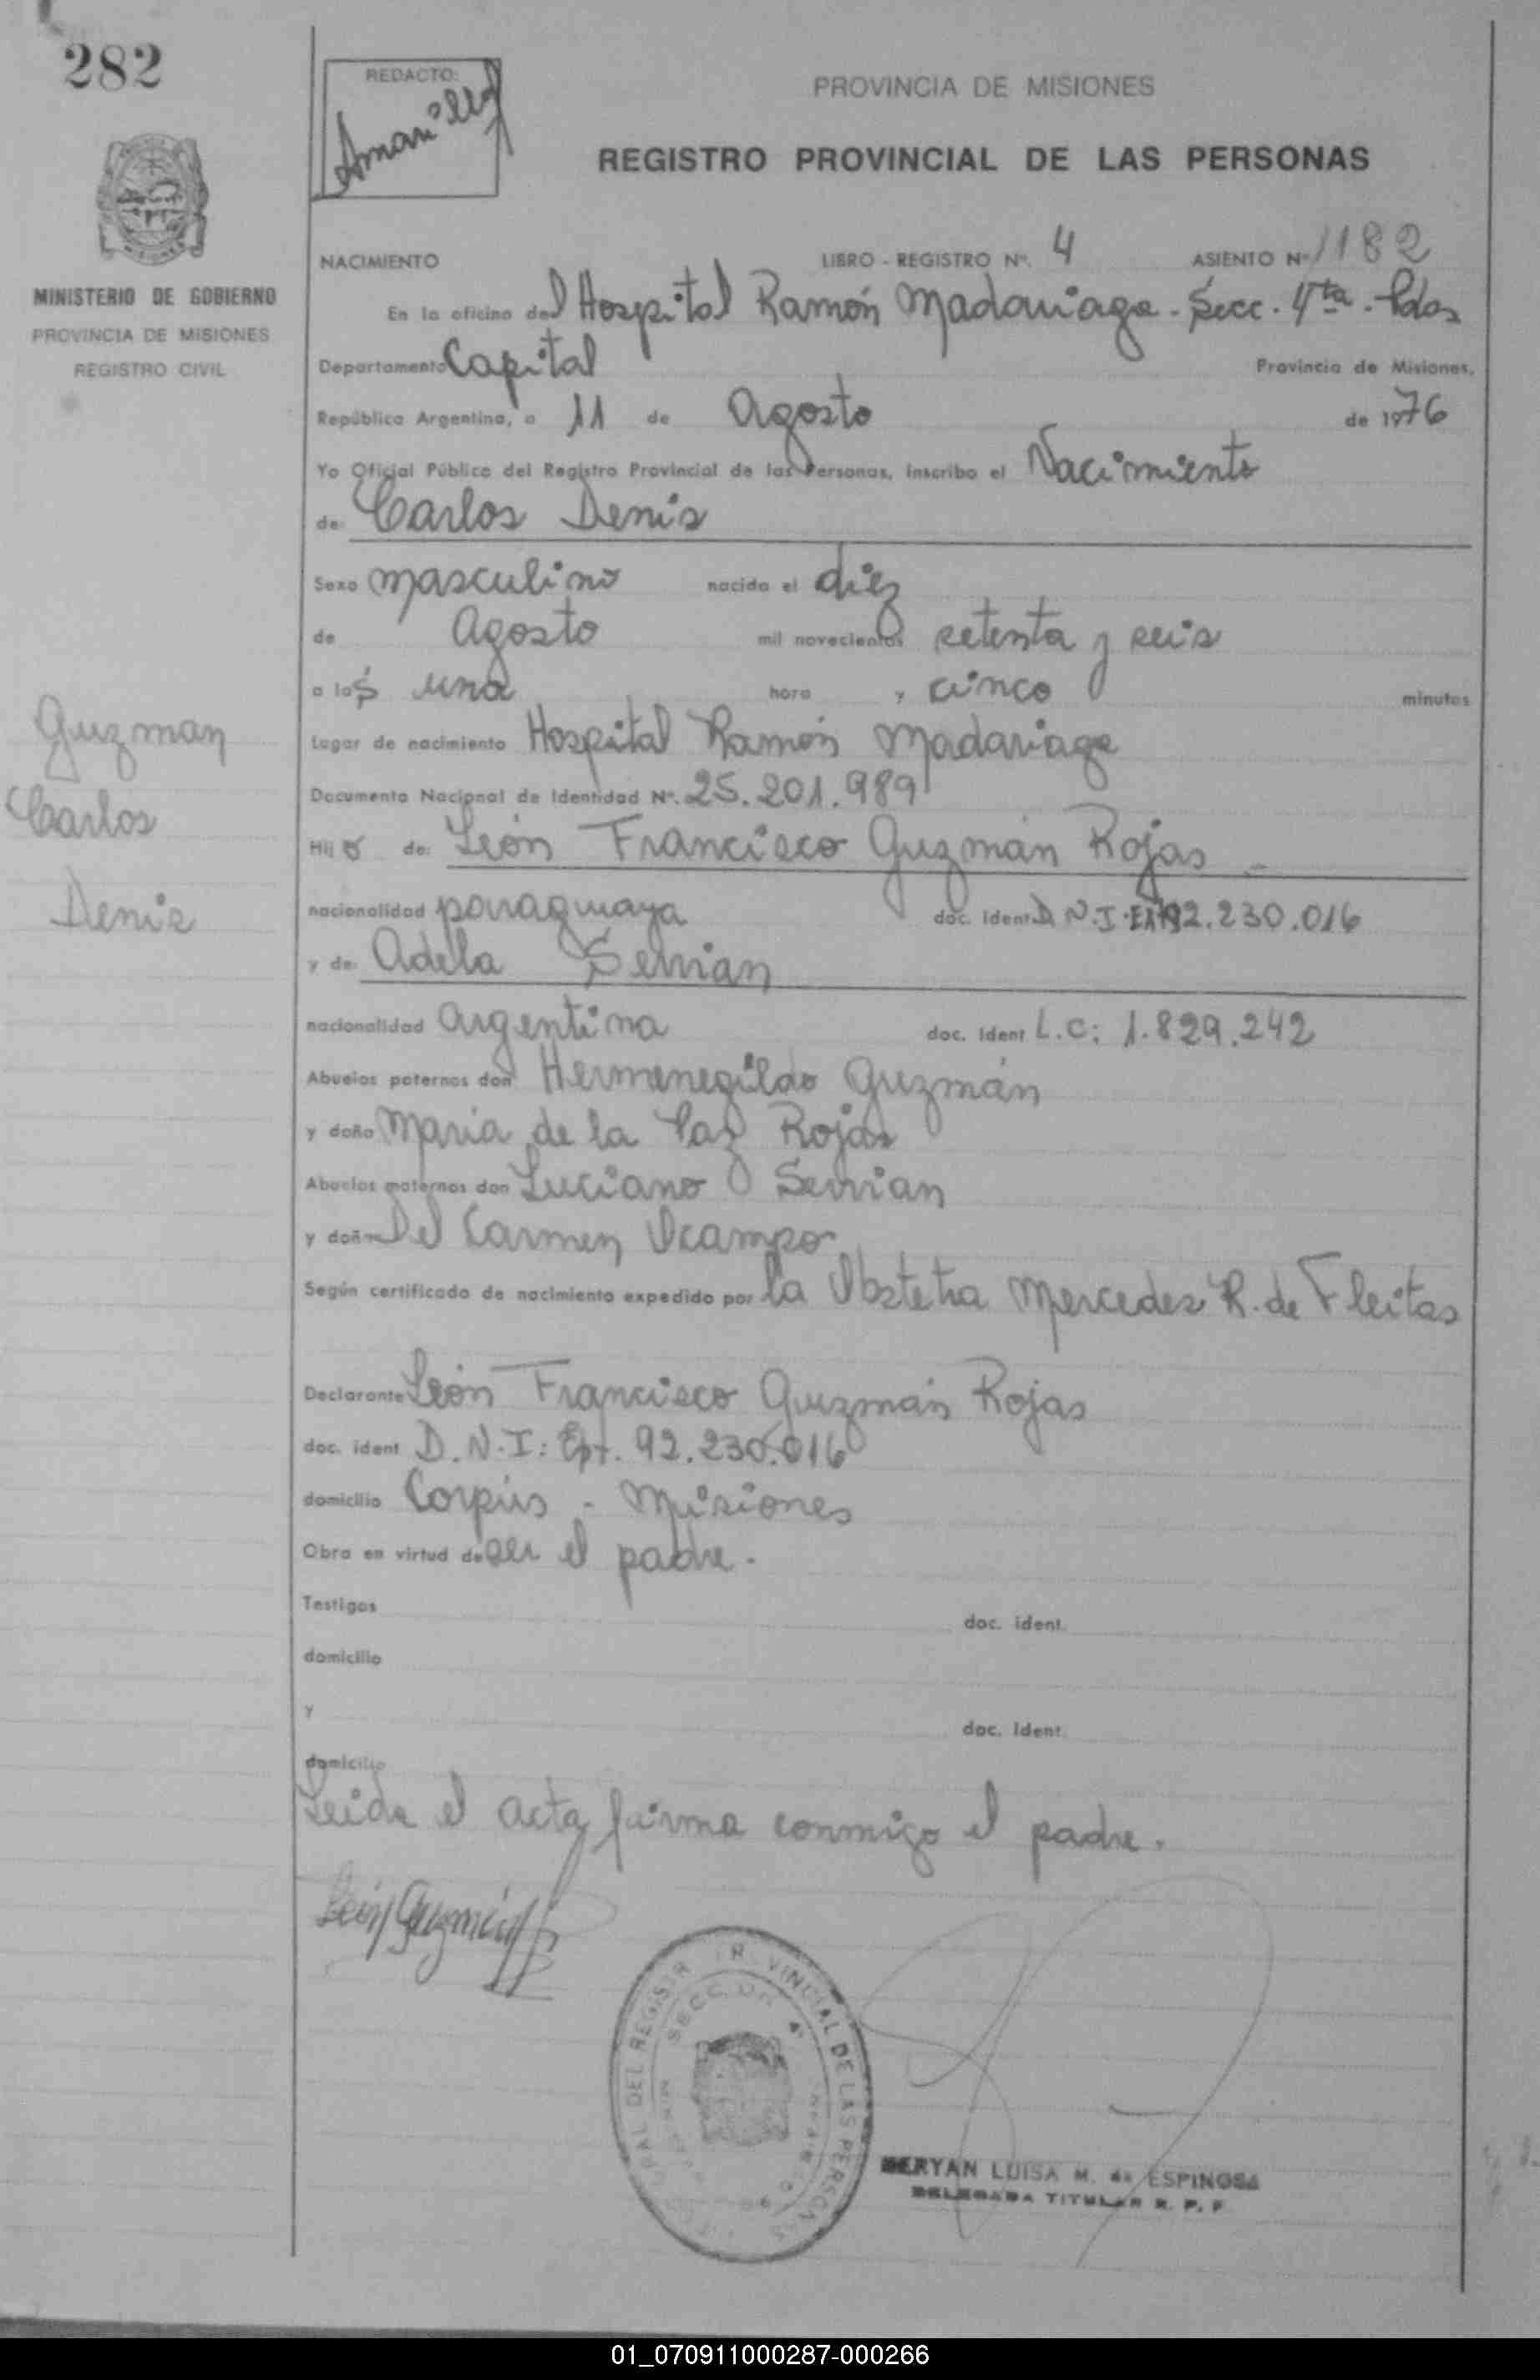 282
REDACTO:
PROVINCIA DE MISIONES
REGISTRO PROVINCIAL DE LAS PERSONAS
MINISTERIO DE GOBIERNO
PROVINCIA DE MISIONES
REGISTRO CIVIL
NACIMIENTO LIBRO - REGISTRO Nº. 4 ASIENTO Nº 1182
En la oficina del Hospital Ramón Madariaga - Secc. 4ta - Pdas
Departamento Capital Provincia de Misiones,
República Argentina, a 11 de Agosto de 1976
Yo Oficial Público del Registro Provincial de las Personas, inscribo el Nacimiento
de Carlos Denis
Sexo masculino nacido el diez
de Agosto mil novecientos setenta y seis
a las una hora y cinco minutos
Guzman
Carlos
Denis
Lugar de nacimiento Hospital Ramón Madariaga
Documento Nacional de Identidad Nº. 25.201.989
Hijo de: León Francisco Guzmán Rojas
nacionalidad paraguaya doc. Ident D.N.I. Ext 92.230.016
y de: Adela Servian
nacionalidad argentina doc. Ident L.C: 1.829.242
Abuelos paternos don Hermenegildo Guzmán
y doña Maria de la Paz Rojas
Abuelos maternos don Luciano Servian
y doña Del Carmen Ocampo
Según certificado de nacimiento expedido por la Obstetra Mercedes R. de Fleitas
Declarante León Francisco Guzmán Rojas
doc. ident D.N.I: Ext. 92.230.016
domicilio Corpus - Misiones
Obra en virtud de ser el padre.
Testigos doc. ident.
domicilio
y doc. Ident.
domicilio
Leida el acta firma conmigo el padre.
León Guzmán
SECCION 4ª
DEL REGISTR PROVINCIAL DE LAS PERSONAS
LUISA M. de ESPINOSA
DELEGADA TITULAR R. P. P
01_070911000287-000266